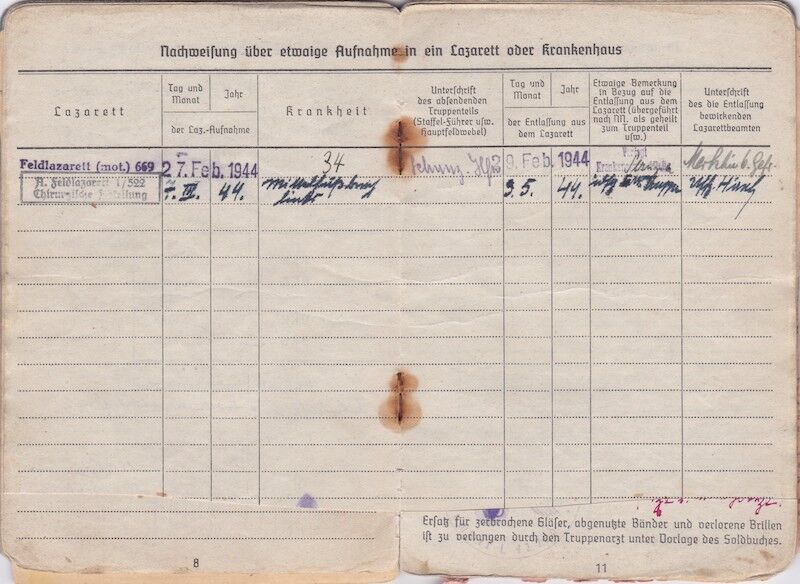 Nachweisung über etwaige Aufnahme in ein Lazarett oder Krankenhaus
Lazarett
Tag und
Monat
Jahr
der Laz.-Aufnahme
Krankheit
Unterschrift
des absendenden
Truppenteils
(Staffel-Führer usw.
Hauptfeldwebel)
Tag und
Monat
Jahr
der Entlassung aus
dem Lazarett
Etwaige Bemerkung
in Bezug auf die
Entlassung aus dem
Lazarett (übergeführt
nach NN. als geheilt
zum Truppenteil
usw.)
Unterschrift
des die Entlassung
bewirkenden
Lazarettbeamten
Feldlazarett (mot.) 669
27. Feb. 1944
34
9. Feb. 1944
A. Feldlazarett 1/522
Chirurgische Abteilung
7. III. 44.
Mittelfußbruch
links
3.5. 44.
Uffz
Ersatz für zerbrochene Gläser, abgenutzte Bänder und verlorene Brillen
ist zu verlangen durch den Truppenarzt unter Vorlage des Soldbuches.
8
11